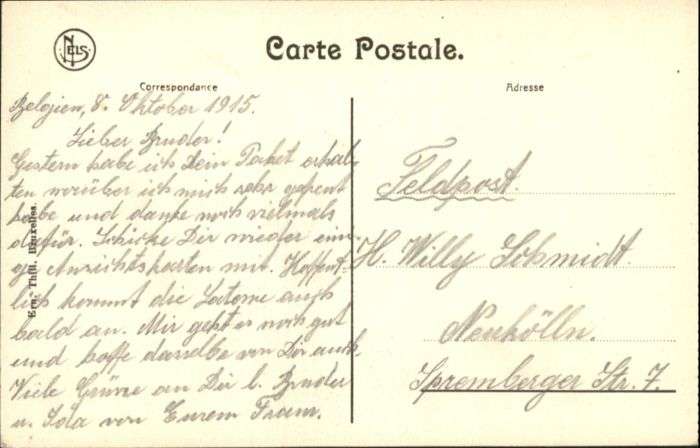 NELS
Carte Postale.
Correspondance
Adresse
Belgien, 8. Oktober 1915.
Lieber Bruder!
Gestern habe ich Dein Paket erhal-
ten worüber ich mich sehr gefreut
habe und danke noch vielmals
dafür. Schicke Dir wieder eini-
ge Ansichtskarten mit. Hoffent-
lich kommt die auch
bald an. Mir geht es noch gut
und hoffe dasselbe von Dir auch.
Viele Grüsse an Dir l. Bruder
u. Ida von Eurem Franz.
Feldpost.
H. Willy Schmidt.
Neukölln.
Spremberger Str. 7.
Ern. Thill, Bruxelles.